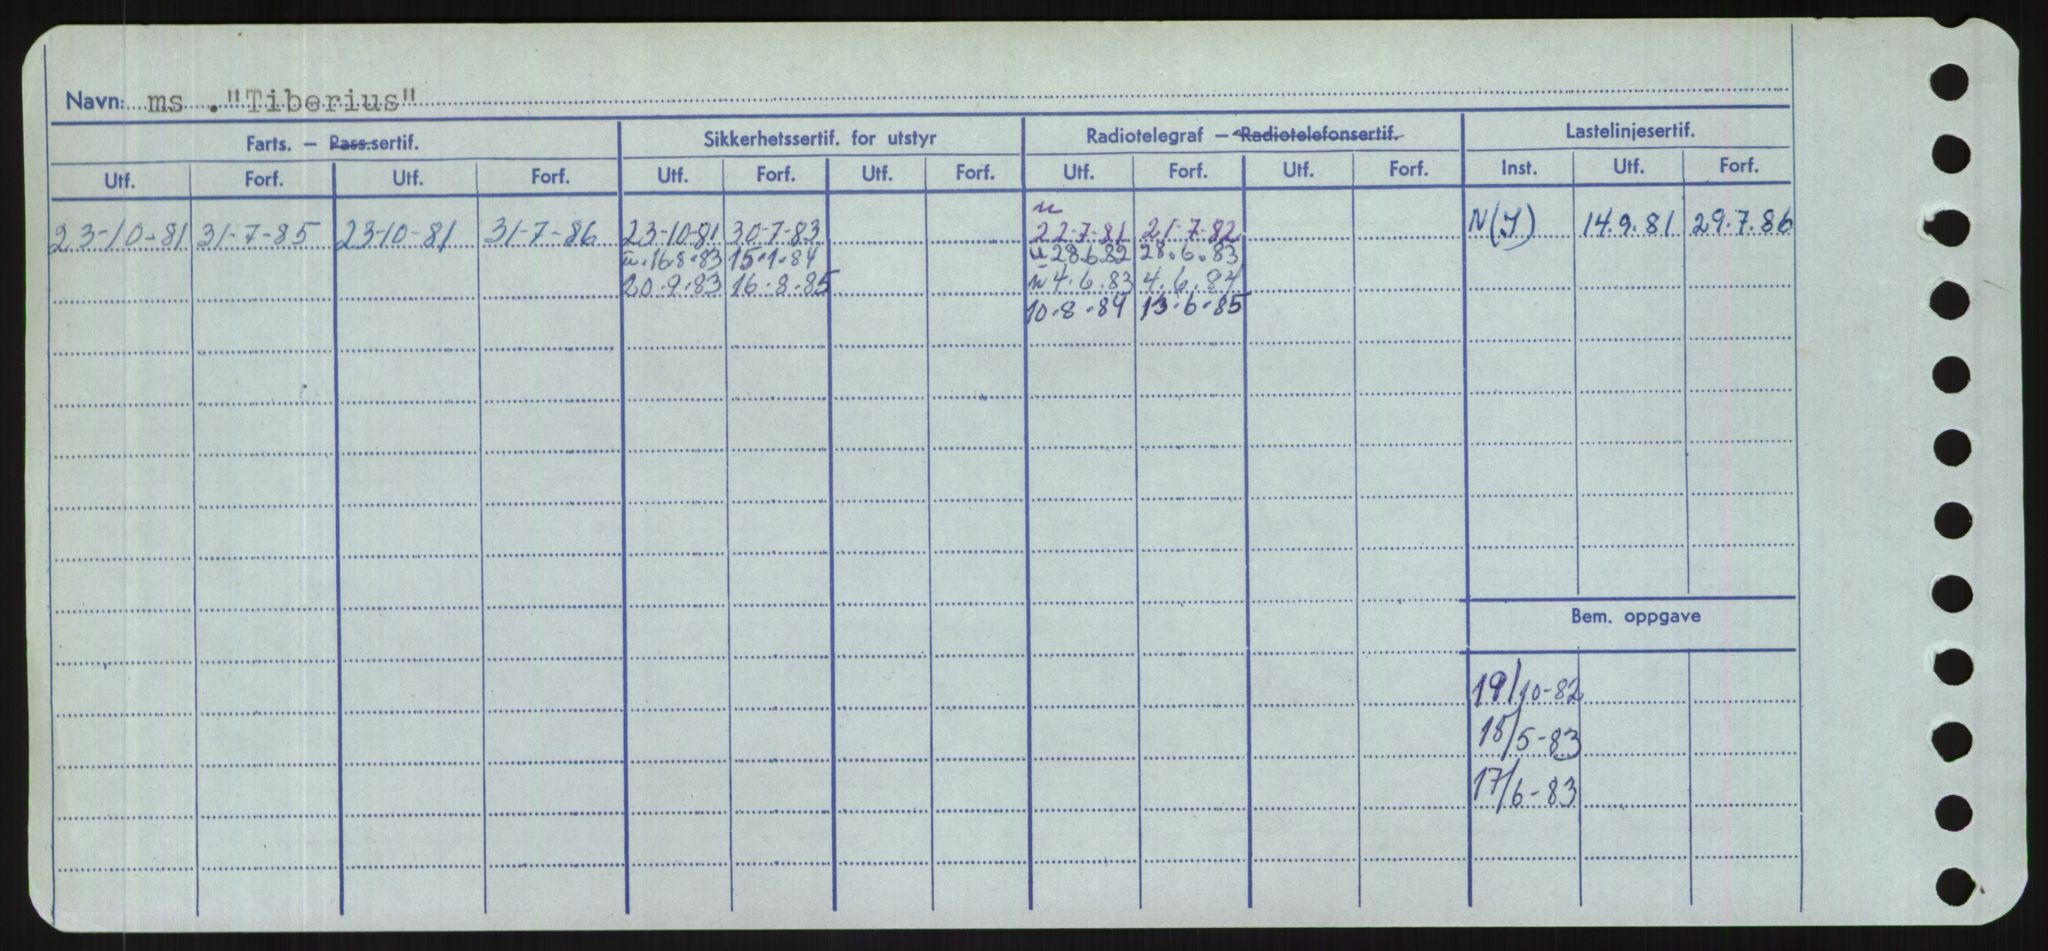 Navn: ms ."Tiberius"
Farts. — Pass.sertif. Sikkerhetssertif. for utstyr Radiotelegraf — Radiotelefonsertif. Lastelinjesertif.
Utf. Forf. Utf. Forf. Utf. Forf. Utf. Forf. Utf. Forf. Utf. Forf. Inst. Utf. Forf.
u
23-10-81 31-7-85 23-10-81 31-7-86 23-10-81 30-7-83 22-7-81 21-7-82 N(I) 14.9.81 29.7.86
u.16.8.83 15.1.84 u 28.6.82 28.6.83
20.9.83 16.8.85 u 4.6.83 4.6.84
10.8.84 13.6.85
Bem. oppgave
19/10-82
18/5-83
17/6-83